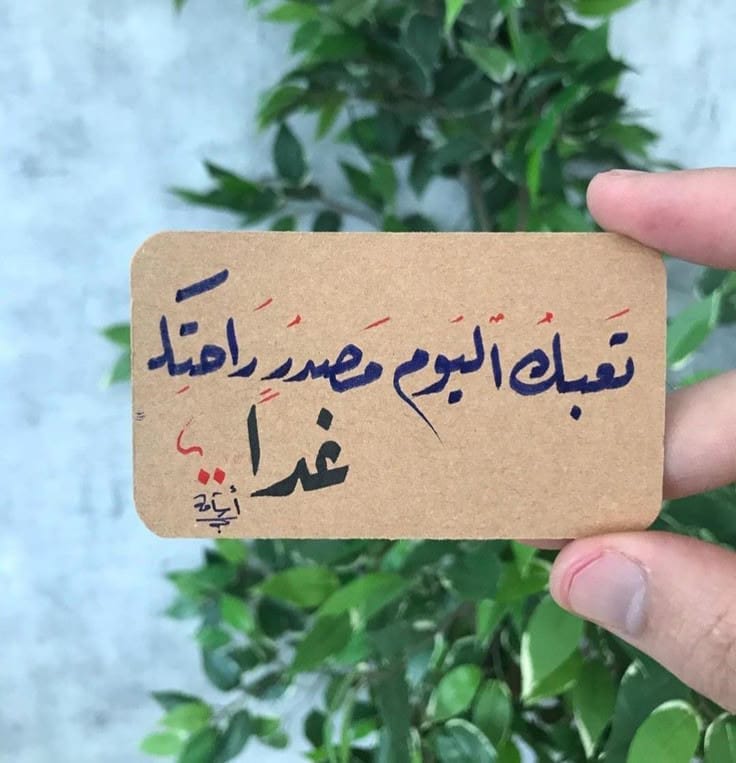 تَعبكُ اليَوم مَصدرُ رَاحتِك
غداً ..
أسامة